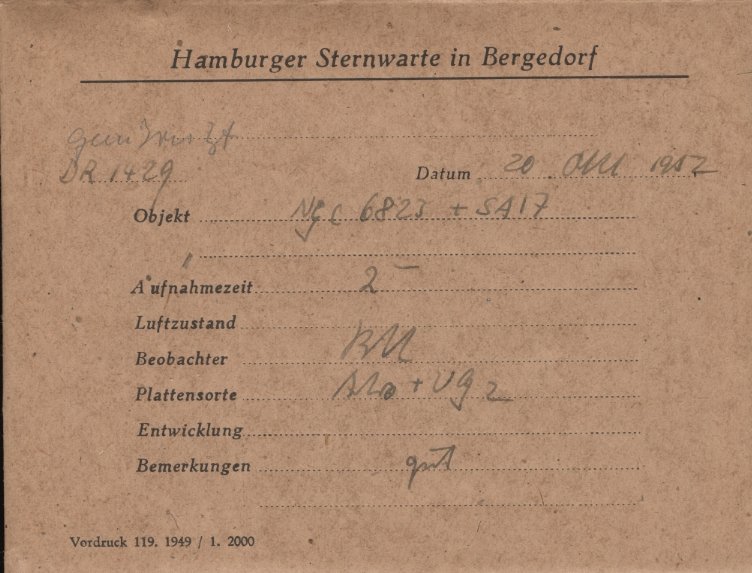 Hamburger Sternwarte in Bergedorf
DR 1429
Datum 20. Okt 1952
Objekt NGC 6823 + SA17
Aufnahmezeit 2
Luftzustand
Beobachter
Plattensorte + UG 2
Entwicklung
Bemerkungen gut
Vordruck 119. 1949 / 1. 2000